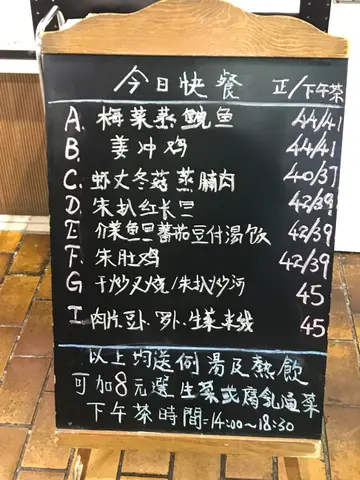 今日快餐 正/下午茶
A. 梅菜蒸鲩鱼 44/41
B. 姜冲鸡 44/41
C. 虾丈冬菇蒸腩肉 40/37
D. 朱扒红长旦 42/39
E 介菜鱼旦蕃茄豆付湯飯 42/39
F. 朱肚鸡 42/39
G 干炒叉烧/朱扒炒河 45
I 肉片.豆卜.罗卜.生菜米线 45
以上均送例湯及熱飲
可加8元選生菜或腐乳通菜
下午茶時間=14:00~18:30